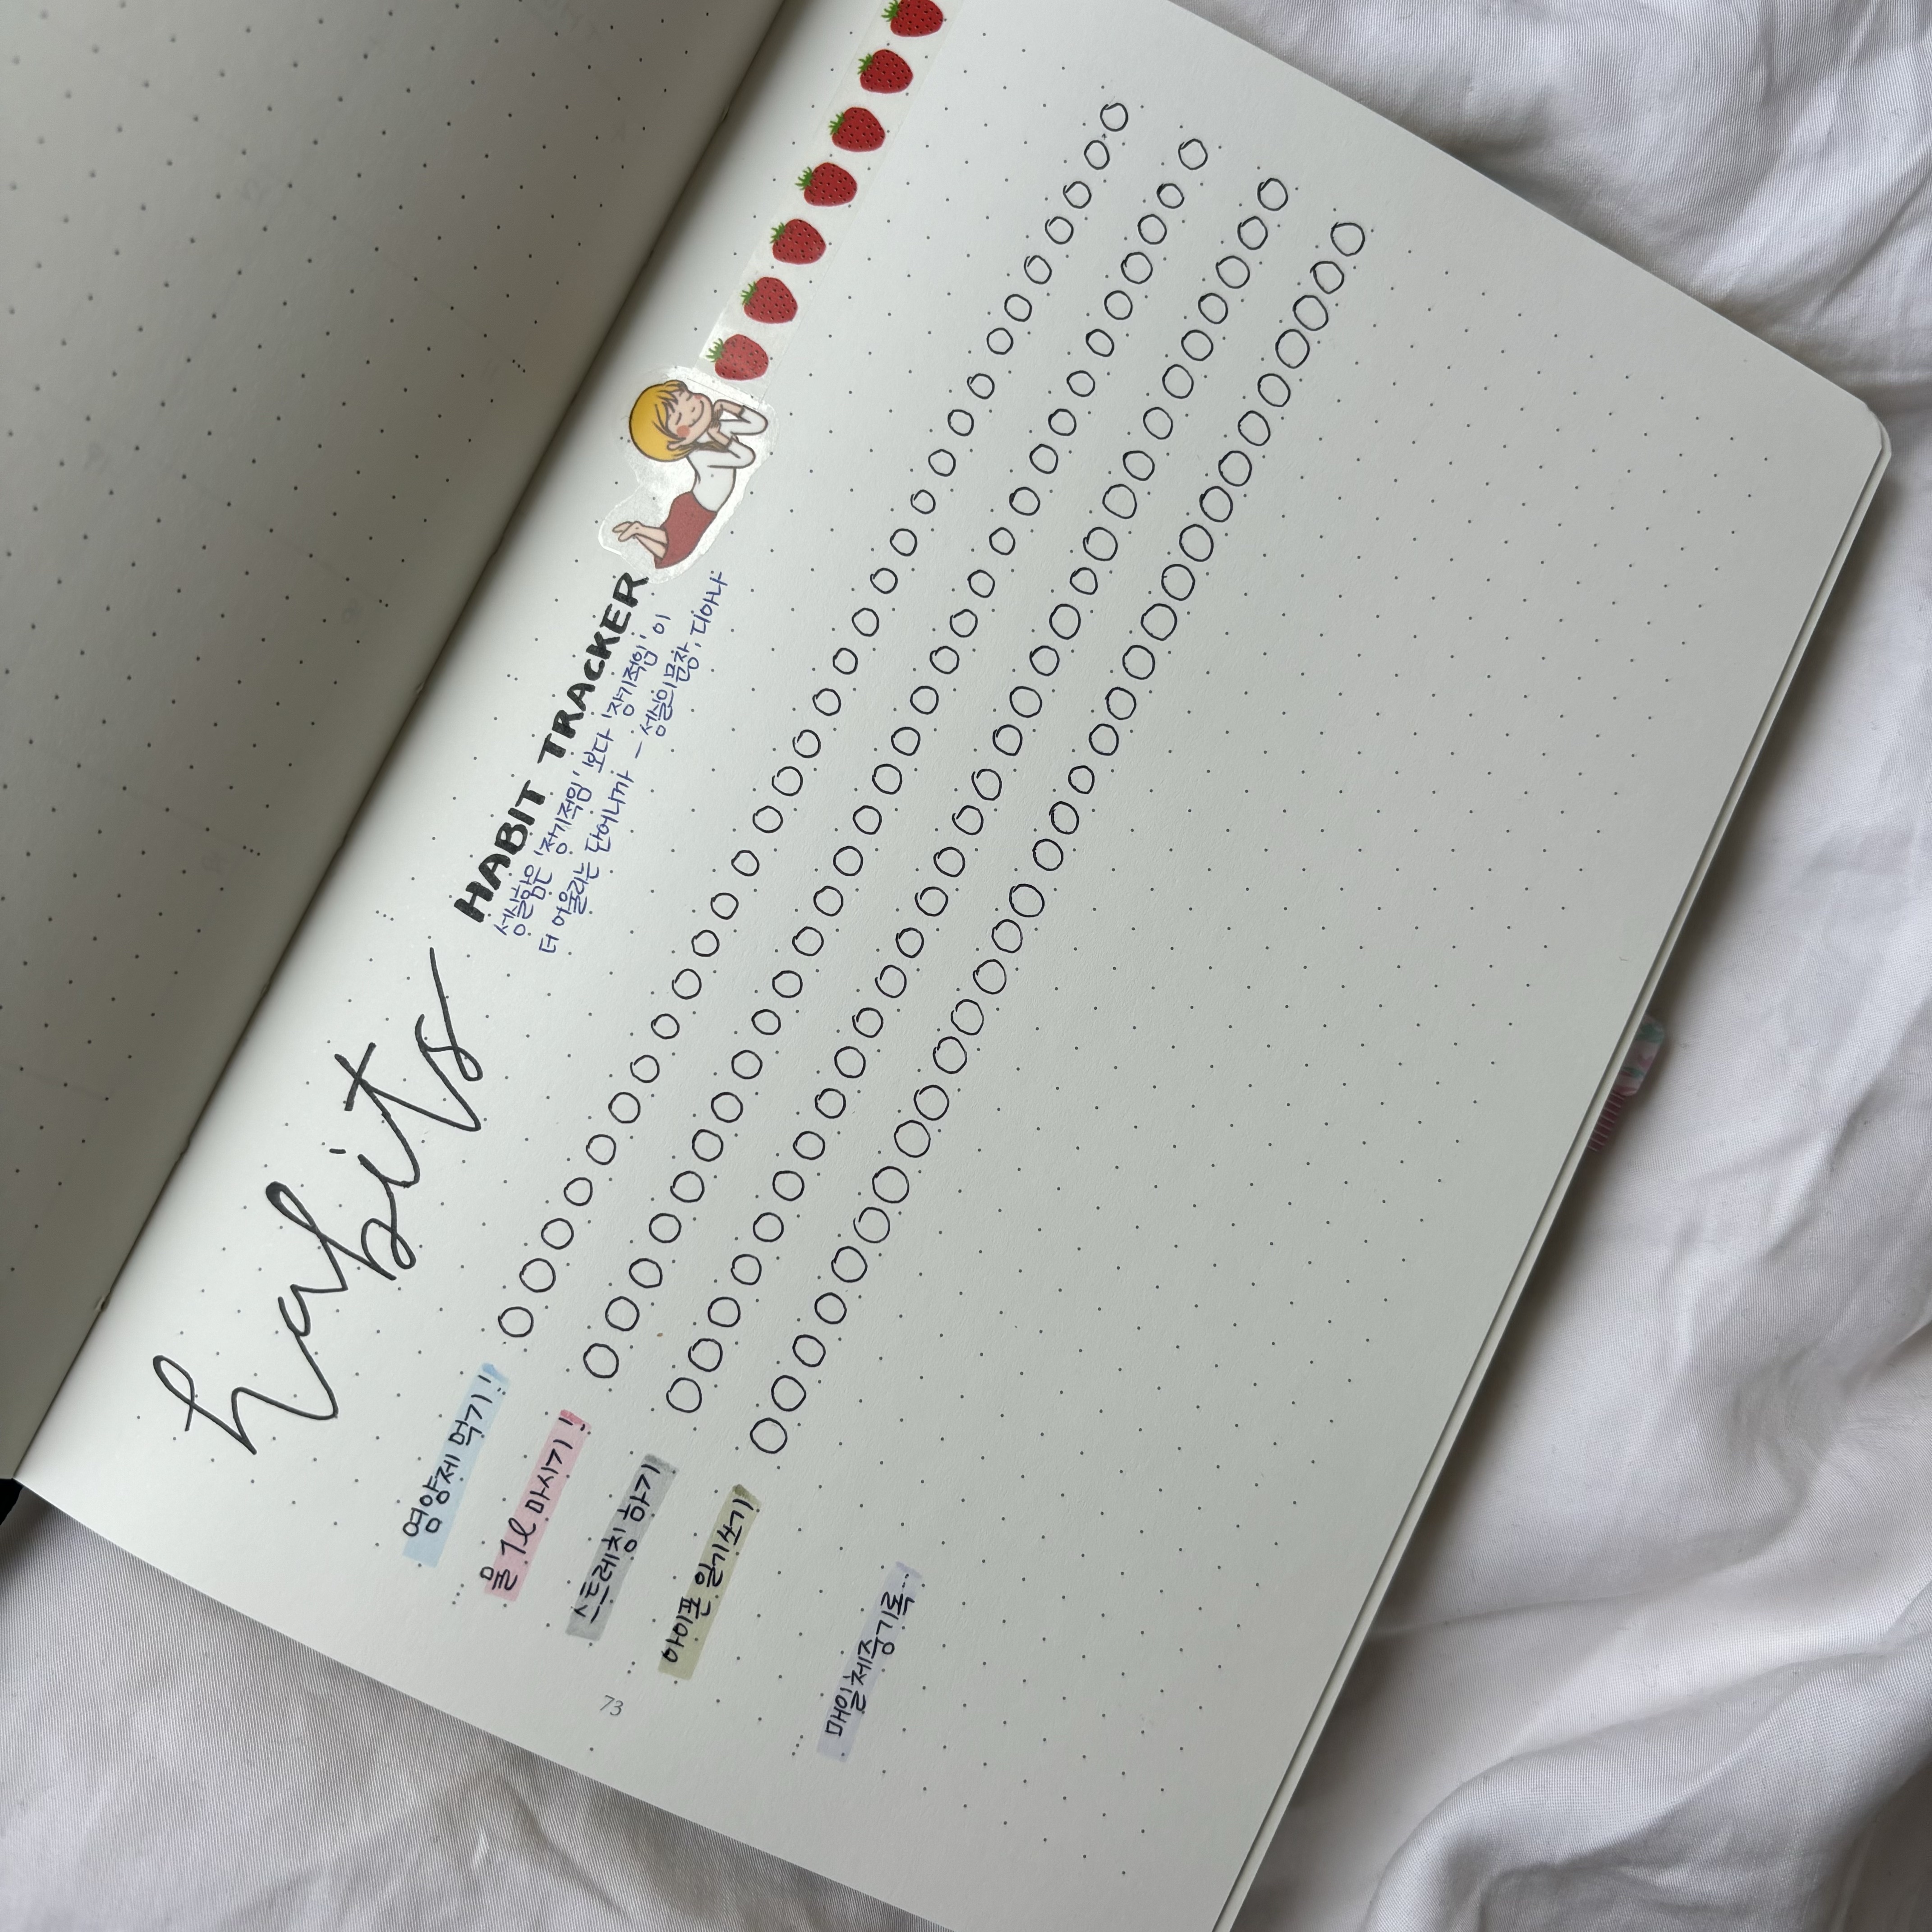 habits
HABIT TRACKER
성실함은 '정기적임' 보다 '장기적임' 이
더 어울리는 단어니까 - 성실의 문장, 디아나
영양제 먹기!!
물 1l 마시기!!
스트레칭 하기
아이폰 일기쓰기
매일 체중기록..
73